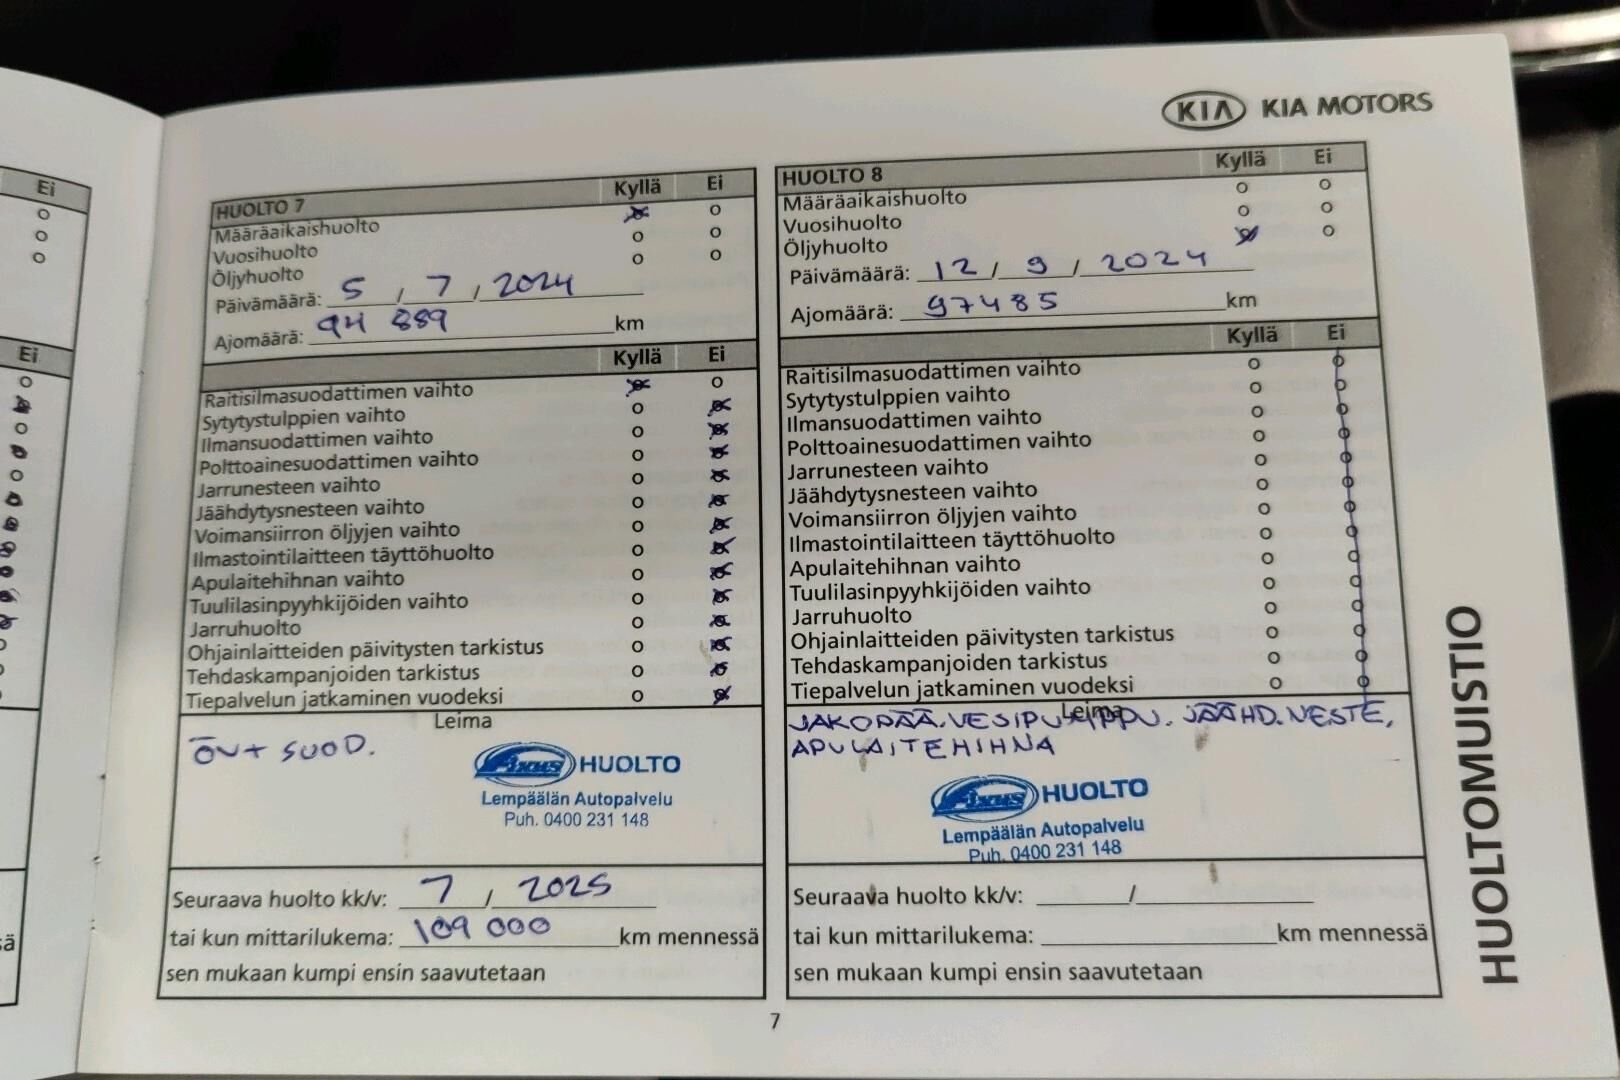 Ei
Ei
KIA KIA MOTORS
HUOLTO 7 Kyllä Ei
Määräaikaishuolto
Vuosihuolto
Öljyhuolto
Päivämäärä: 5 / 7 / 2024
Ajomäärä: 94 889 km
Kyllä Ei
Raitisilmasuodattimen vaihto
Sytytystulppien vaihto
Ilmansuodattimen vaihto
Polttoainesuodattimen vaihto
Jarrunesteen vaihto
Jäähdytysnesteen vaihto
Voimansiirron öljyjen vaihto
Ilmastointilaitteen täyttöhuolto
Apulaitehihnan vaihto
Tuulilasinpyyhkijöiden vaihto
Jarruhuolto
Ohjainlaitteiden päivitysten tarkistus
Tehdaskampanjoiden tarkistus
Tiepalvelun jatkaminen vuodeksi
Leima
ÖV+ SUOD.
Fixus HUOLTO
Lempäälän Autopalvelu
Puh. 0400 231 148
Seuraava huolto kk/v: 7 / 2025
tai kun mittarilukema: 109 000 km mennessä
sen mukaan kumpi ensin saavutetaan
HUOLTO 8 Kyllä Ei
Määräaikaishuolto
Vuosihuolto
Öljyhuolto
Päivämäärä: 12 / 9 / 2024
Ajomäärä: 97485 km
Kyllä Ei
Raitisilmasuodattimen vaihto
Sytytystulppien vaihto
Ilmansuodattimen vaihto
Polttoainesuodattimen vaihto
Jarrunesteen vaihto
Jäähdytysnesteen vaihto
Voimansiirron öljyjen vaihto
Ilmastointilaitteen täyttöhuolto
Apulaitehihnan vaihto
Tuulilasinpyyhkijöiden vaihto
Jarruhuolto
Ohjainlaitteiden päivitysten tarkistus
Tehdaskampanjoiden tarkistus
Tiepalvelun jatkaminen vuodeksi
Leima
JAKOPÄÄ. VESIPUMPPU. JÄÄHD.NESTE,
APULAITEHIHNA
Fixus HUOLTO
Lempäälän Autopalvelu
Puh. 0400 231 148
Seuraava huolto kk/v: /
tai kun mittarilukema: km mennessä
sen mukaan kumpi ensin saavutetaan
HUOLTOMUISTIO
7